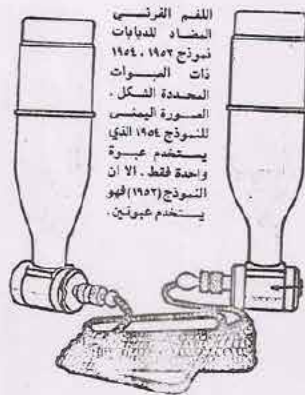 اللغم الفرنسي
المضاد للدبابات
نموذج ١٩٥٢ ، ١٩٥٤
ذات العبوات
المحددة الشكل .
الصورة اليمنى
للنموذج ١٩٥٤ الذي
يستخدم عبوة
واحدة فقط . الا ان
النموذج (١٩٥٢) فهو
يستخدم عبوتين .